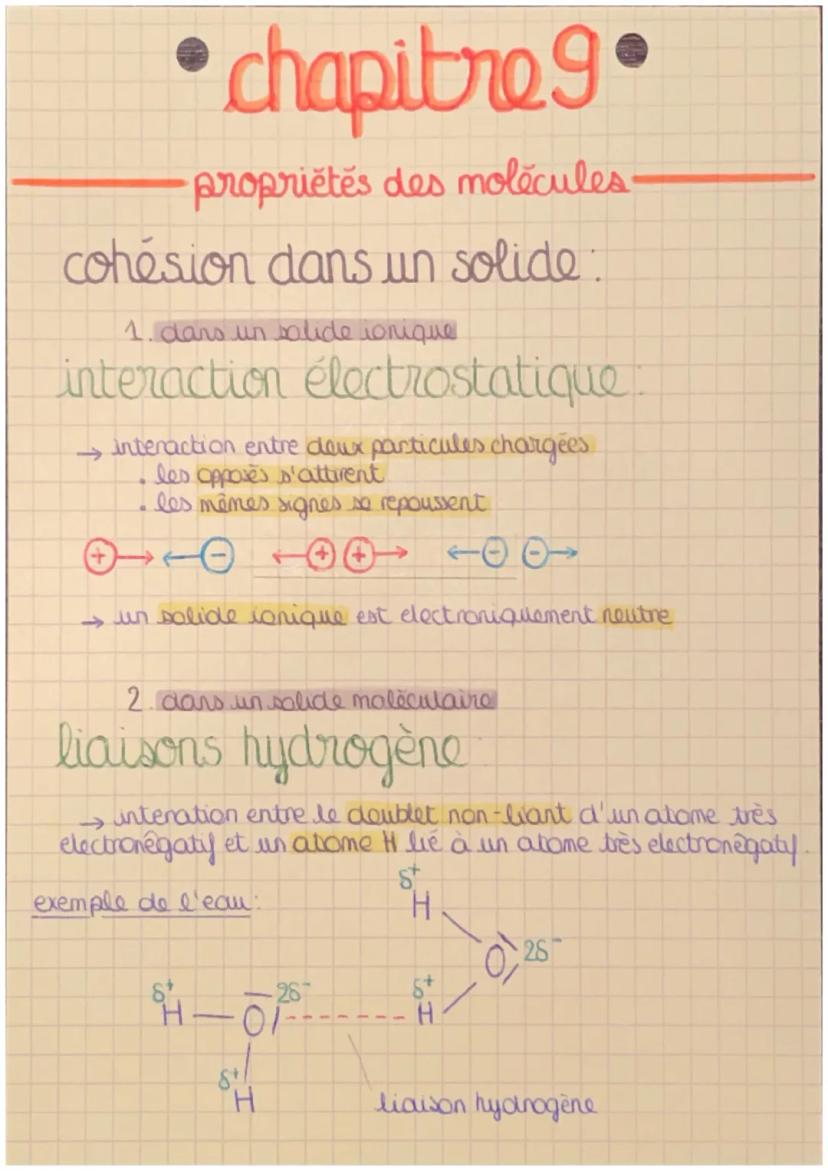 chapitre 9
propriétés des molécules
cohésion dans un solide :
1. dans un solide ionique
interaction électrostatique :
→ interaction entre deux particules chargées
. les opposés s'attirent
. les mêmes signes se repoussent
+ → ← - ← + + → ← - - →
→ un solide ionique est electroniquement neutre
2. dans un solide moléculaire
liaisons hydrogène
→ interation entre le doublet non-liant d'un atome très
electronégatif et un atome H lié à un atome très electronégatif.
exemple de l'eau :
δ+
H
O 2δ-
δ+ 2δ- δ+
H O H
δ+
H
liaison hydrogène